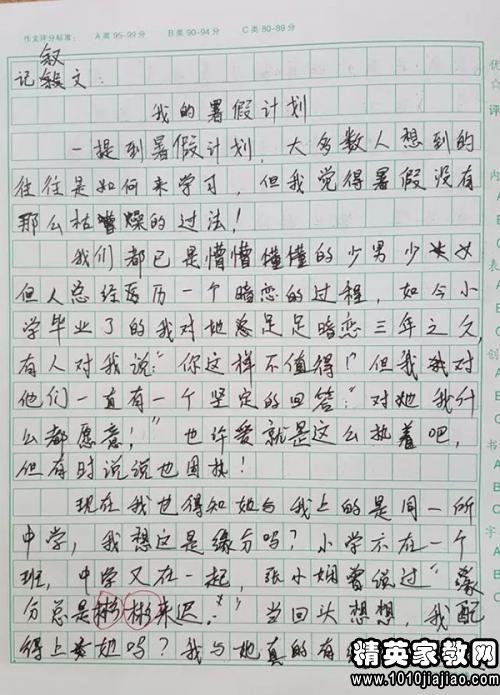 作文评分标准： A类 95-99分 B类 90-94分 C类 80-89分
叙
记 文：
我的暑假计划
一提到暑假计划，大多数人想到的
往往是如何来学习，但我觉得暑假没有
那么枯燥的过法！
我们都已是懵懵懂懂的少男少女
但人总经历一个暗恋的过程，如今小
学毕业了的我对她足足暗恋三年之久
有人对我说："你这样不值得！"但我对
他们一直有一个坚定的回答："对她我什
么都愿意！"也许爱就是这么执着吧，
但有时说说也固执！
现在我也得知她与我上的是同一所
中学，我想这是缘分吗？小学亦在一个
班，中学又在一起，张小娴曾说过"缘
分总是彬彬来迟。"当回头想想，我配
得上她吗？我与她真的有
优
☆
评
内
A
B
C
表
A
B
C
创
A
B
C
字
A
精英家教网
www.1010jiajiao.com